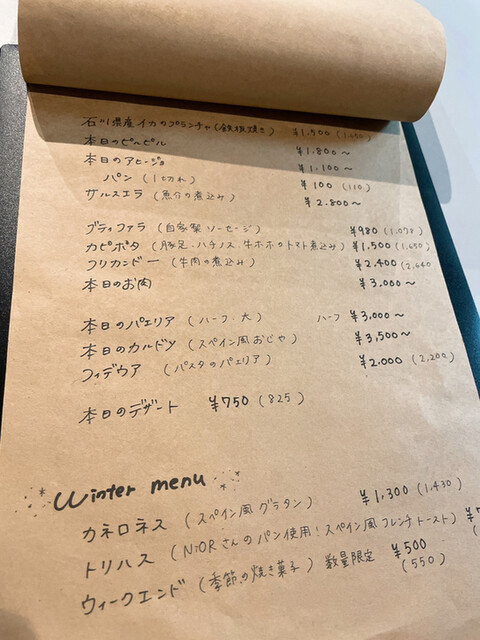 石川県産イカのプランチャ(鉄板焼き) ¥1,500 (1,650)
本日のピルピル ¥1.800〜
本日のアヒージョ ¥1.100〜
パン (1切れ) ¥100 (110)
サルスエラ (魚介の煮込み) ¥2.800〜
ブティファラ (自家製ソーセージ) ¥980 (1,078)
カピポタ (豚足・ハチノス・牛ホホのトマト煮込み) ¥1,500 (1,650)
フリカンドー (牛肉の煮込み) ¥2,400 (2,640
本日のお肉 ¥3,000〜
本日のパエリア (ハーフ・大) ハーフ ¥3,000〜
本日のカルドソ (スペイン風おじや) ¥3,500〜
フィデウア (パスタのパエリア) ¥2.000 (2,200)
本日のデザート ¥750 (825)
Winter menu
カネロネス (スペイン風グラタン) ¥1,300 (1,430)
トリハス (NiORさんのパン使用!スペイン風フレンチトースト) ¥
ウィークエンド (季節の焼き菓子) 数量限定 ¥500
(550)